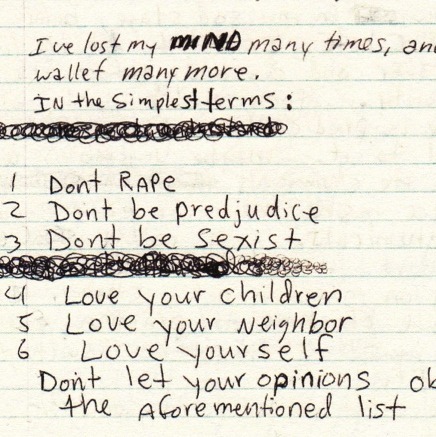 I've lost my MIND many times, and
wallet many more.
IN the Simplest terms:
1 Dont RAPE
2 Dont be predjudice
3 Dont be Sexist
4 Love your children
5 Love your Neighbor
6 Love yourself
Dont let your opinions
the Aforementioned list